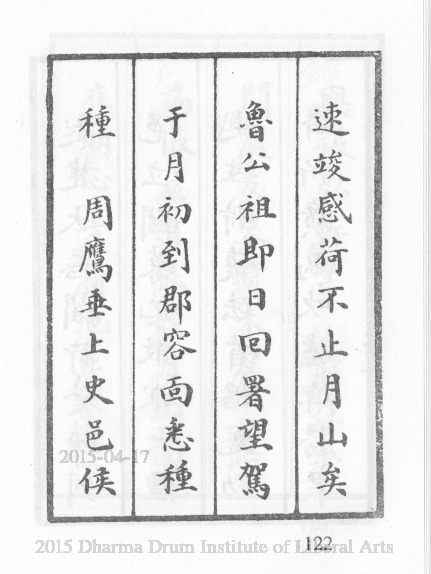 速竣感荷不止月山矣
魯公祖即日回署望駕
于月初到郡容面悉種
種　周鷹垂上史邑侯
2015-04-17
122
2015 Dharma Drum Institute of Liberal Arts